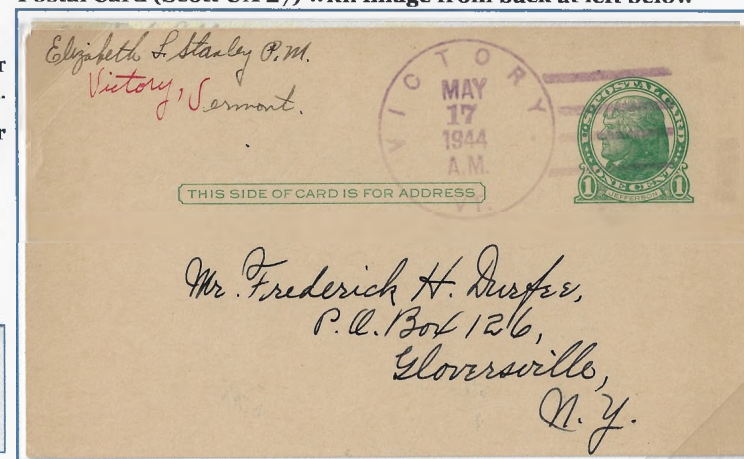 Postal Card (Scott UX 27) with image from back at left below
Elizabeth L. Stanley P.M.
Victory, Vermont.
VICTORY
MAY
17
1944
A.M.
VT.
U.S. POSTAL CARD
ONE CENT
1 JEFFERSON 1
THIS SIDE OF CARD IS FOR ADDRESS
Mr. Frederick H. Durfee,
P.O. Box 126,
Gloversville,
N.Y.